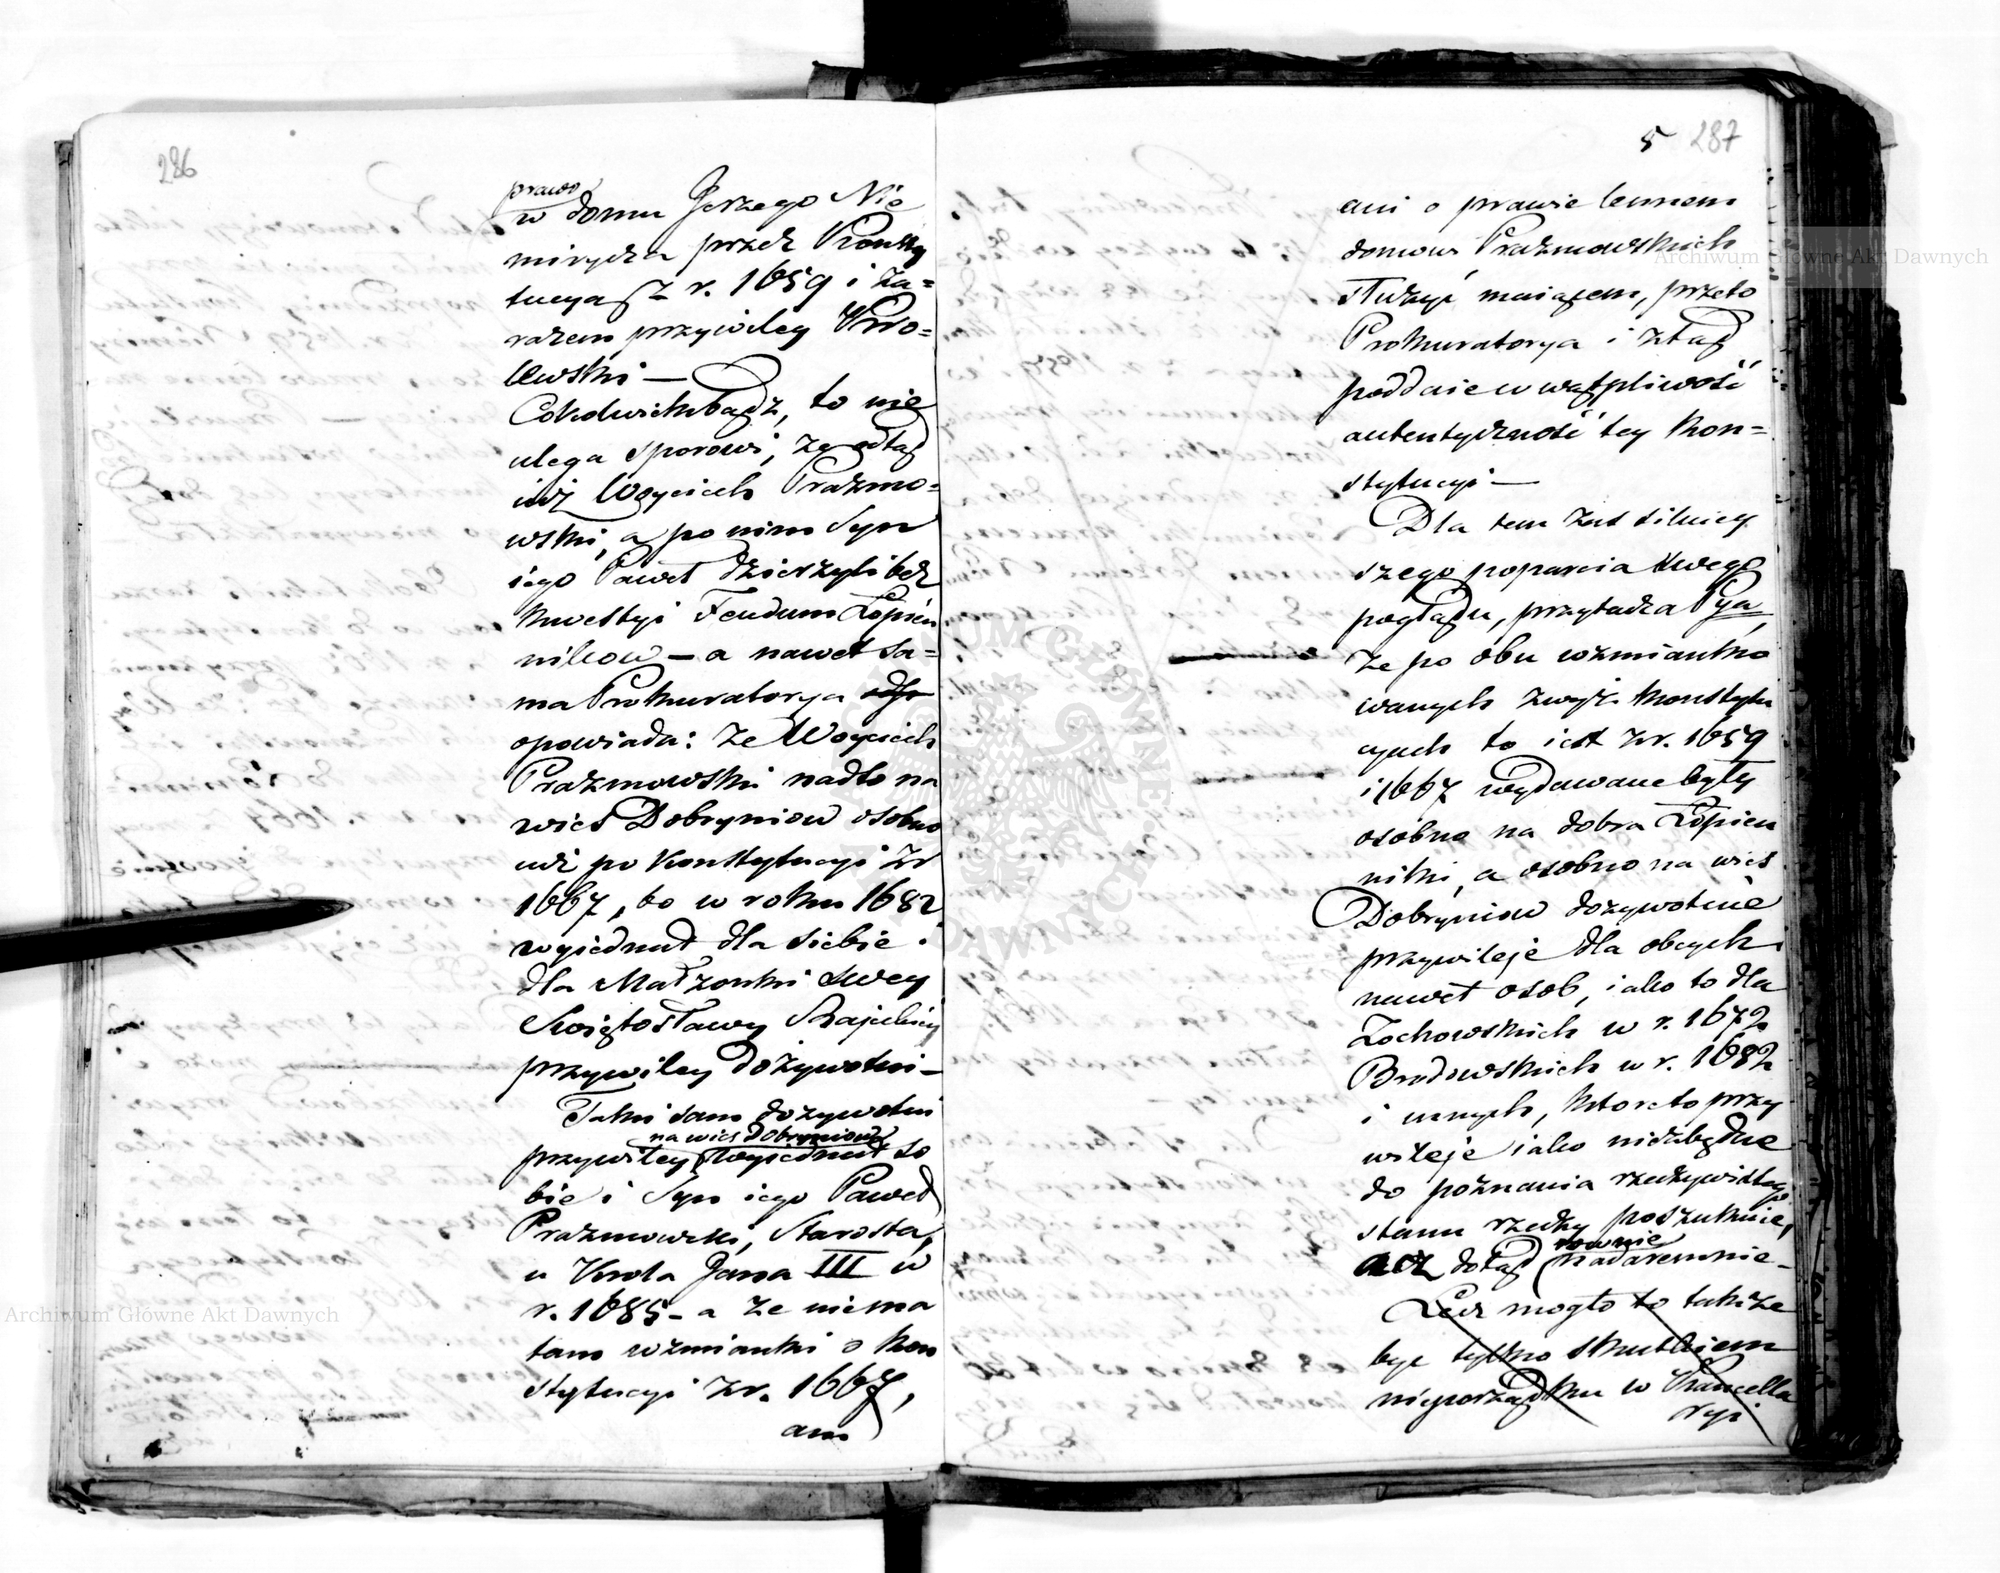 286
prawo
w domu Jerzego Nie
mirycza przez Konsty
tucyą z r. 1659 i za=
razem przywiley Kró=
lewski —
Cokolwiekbądź, to nie
ulega sporowi, że odtąd
iuż Woyciech Prażmo=
wski, a po nim Syn
iego Paweł dzierżyli bez
kwestyi Feudum Łopien
ników — a nawet sa=
ma Prokuratorya odp
opowiada: że Woyciech
Prażmowski nadto na
wieś Dobryniow osobno
iuż po Konstytucyi zr
1667, bo w roku 1682
wyiednał dla siebie i
dla Małżonki swey
Swiętosławy
przywiley dożywotni —
Taki sam dożywotni
na wieś Dobryniow
przywiley wyiednał so
bie i Syn iego Paweł
Prażmowski, Starosta,
u Króla Jana III w
r. 1685 - a że niema
tam wzmianki o Kon
stytucyi zr. 1667,
ani
5 287
ani o prawie lennem
domowi Prażmowskich
służyć maiącem, przeto
Prokuratorya i ztąd
poddaie w wątpliwość
autentyczność tey Kon=
stytucyi —
Dla tem zaś silniey
szego poparcia swego
poglądu, przytacza Pya,
że po obu wzmianko
wanych zwyż Konstytu
cyach to iest zr. 1659
i 1667 wydawane były
osobne na dobra Łopien
niki, a osobno na wieś
Dobryniow dożywotnie
przywileje dla obcych
nawet osób, iako to dla
Żochowskich w r. 1672
Brodowskich w r. 1682
i innych, które to przy
wileje iako niezbędne
do poznania rzeczywistego
stanu rzeczy poszukuie,
acz dotąd nadaremnie —
rownie
Lecz mogło to także
być tylko skutkiem
nieporządku w Kancella
ryi
Archiwum Główne Akt Dawnych
Archiwum Główne Akt Dawnych